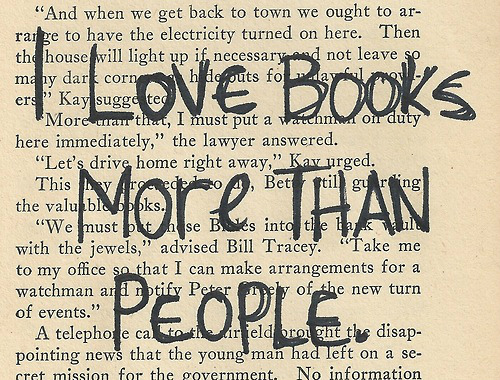 "And when we get back to town we ought to ar-
range to have the electricity turned on here. Then
the house will light up if necessary and not leave so
many dark hideouts for
ers" Kay suggested.
I LOVE BOOKS
"More than that, I must put a watchman on duty
here immediately," the lawyer answered.
"Let's drive home right away," Kay urged.
This they proceeded to do, Betty still guarding
the valuable books.
MORe THAN
"We must put those Bibles into the bank vault
with the jewels," advised Bill Tracey. "Take me
to my office so that I can make arrangements for a
watchman and notify Peter of the new turn
of events."
PEOPLE.
A telephone call to the airfield brought the disap-
pointing news that the young man had left on a se-
cret mission for the government. No information